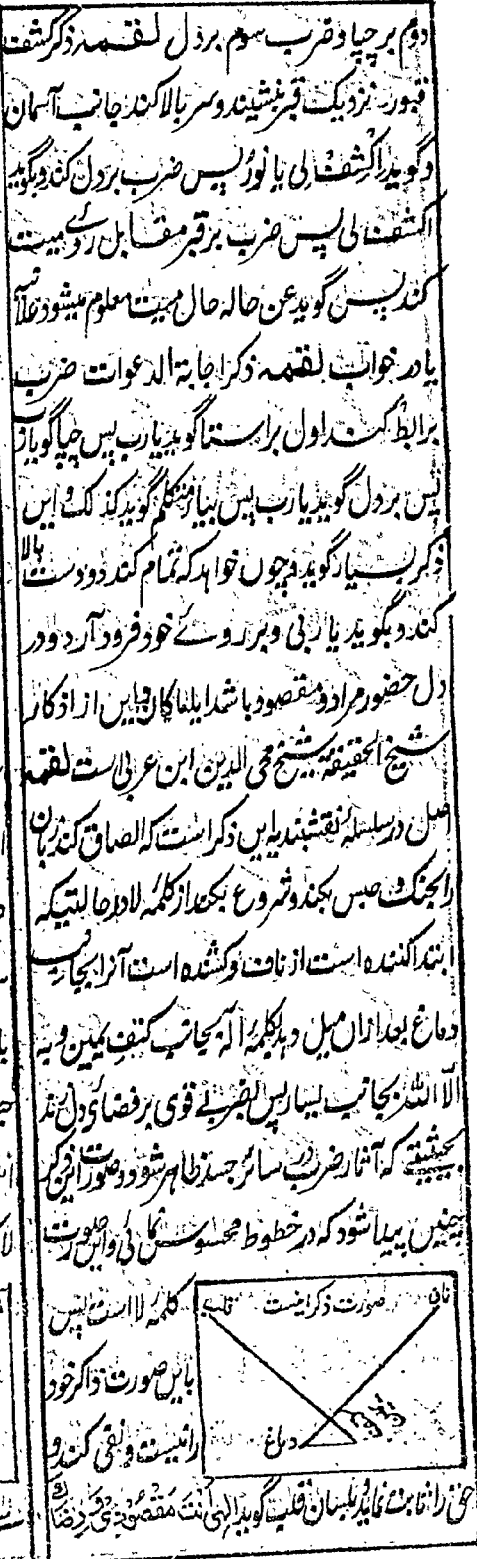 دوم بر چپا و ضرب سوم بر دل لقمه ذکر کشف
قبور نزدیک قبر نشیند و سر بالا کند جانب آسمان
و گوید اکشف لی یا نور پس ضرب بر دل کند و بگوید
اکشف لی پس ضرب بر قبر مقابل روئے میت
کند پس گوید عن حاله حال میت معلوم میشود علانیة
یا در خواب لقمه ذکر اجابة الدعوات ضرب
کند اول براستا گوید یارب پس چپا گوید یارب
پس بر دل گوید یارب پس گوید کذلک و این
ذکر بسیار گوید و چون خواهد که تمام کند دو دست بالا
کند و بگوید یا ربی و بر روئے خود فرود آرد و در
دل حضور مراد و مقصود باشد کان و این از اذکار
شیخ الحقیقة شیخ محی الدین ابن عربی است لقمه
اصل در سلسلهٔ نقشبندیه این ذکر است که الصاق کند زبان
را بحنک و حبس بکند و شروع بکند از کلمهٔ لا در حالتیکه
ابتدا کننده است از ناف و کشنده است آنرا بجانب
دماغ بعد ازان میل دهد کلمهٔ اله بجانب کتف یمین و به
الا الله بجانب یسار پس بضربے قوی بر فضائے دل زند
بحیثیتے که آثار ضرب در سائر جسد ظاهر شود و صورت این ذکر
چنین پیدا شود که در خطوط محسوس و این صورت
کلمهٔ لا است پس
باین صورت ذاکر خود
را نیست و نفی کند و
ناف
صورت ذکر اینست
قلب
دماغ
حق را ثابت نماید و بلسان قلب گوید الهی انت مقصودی و رضاک